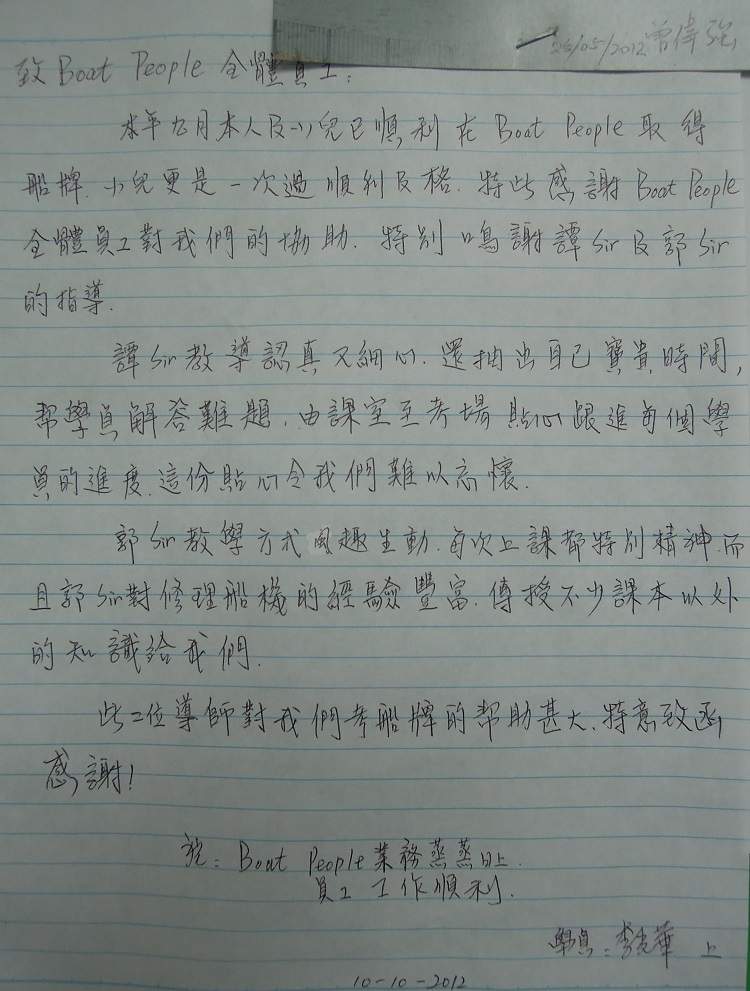 26/05/2012 曾偉強
致 Boat People 全體員工:
本年九月本人及小兒已順利在 Boat People 取得
船牌.小兒更是一次過順利及格.特此感謝 Boat People
全體員工對我們的協助.特別鳴謝譚 Sir 及郭 Sir
的指導.
譚 Sir 教導認真又細心.還抽出自己寶貴時間,
幫學員解答難題.由課室至考場貼心跟進每個學
員的進度.這份貼心令我們難以忘懷.
郭 Sir 教學方式風趣生動.每次上課都特別精神.而
且郭 Sir 對修理船機的經驗豐富.傳授不少課本以外
的知識給我們.
此二位導師對我們考船牌的帮助甚大.特意致函
感謝!
祝: Boat People 業務蒸蒸日上.
員工工作順利.
學員: 李光華 上
10-10-2012